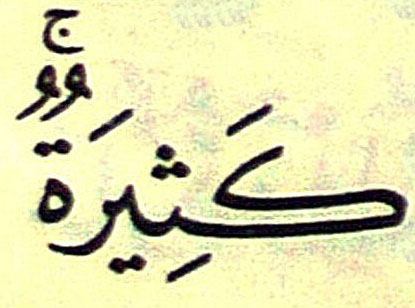 كَثِيرَةٌۚ